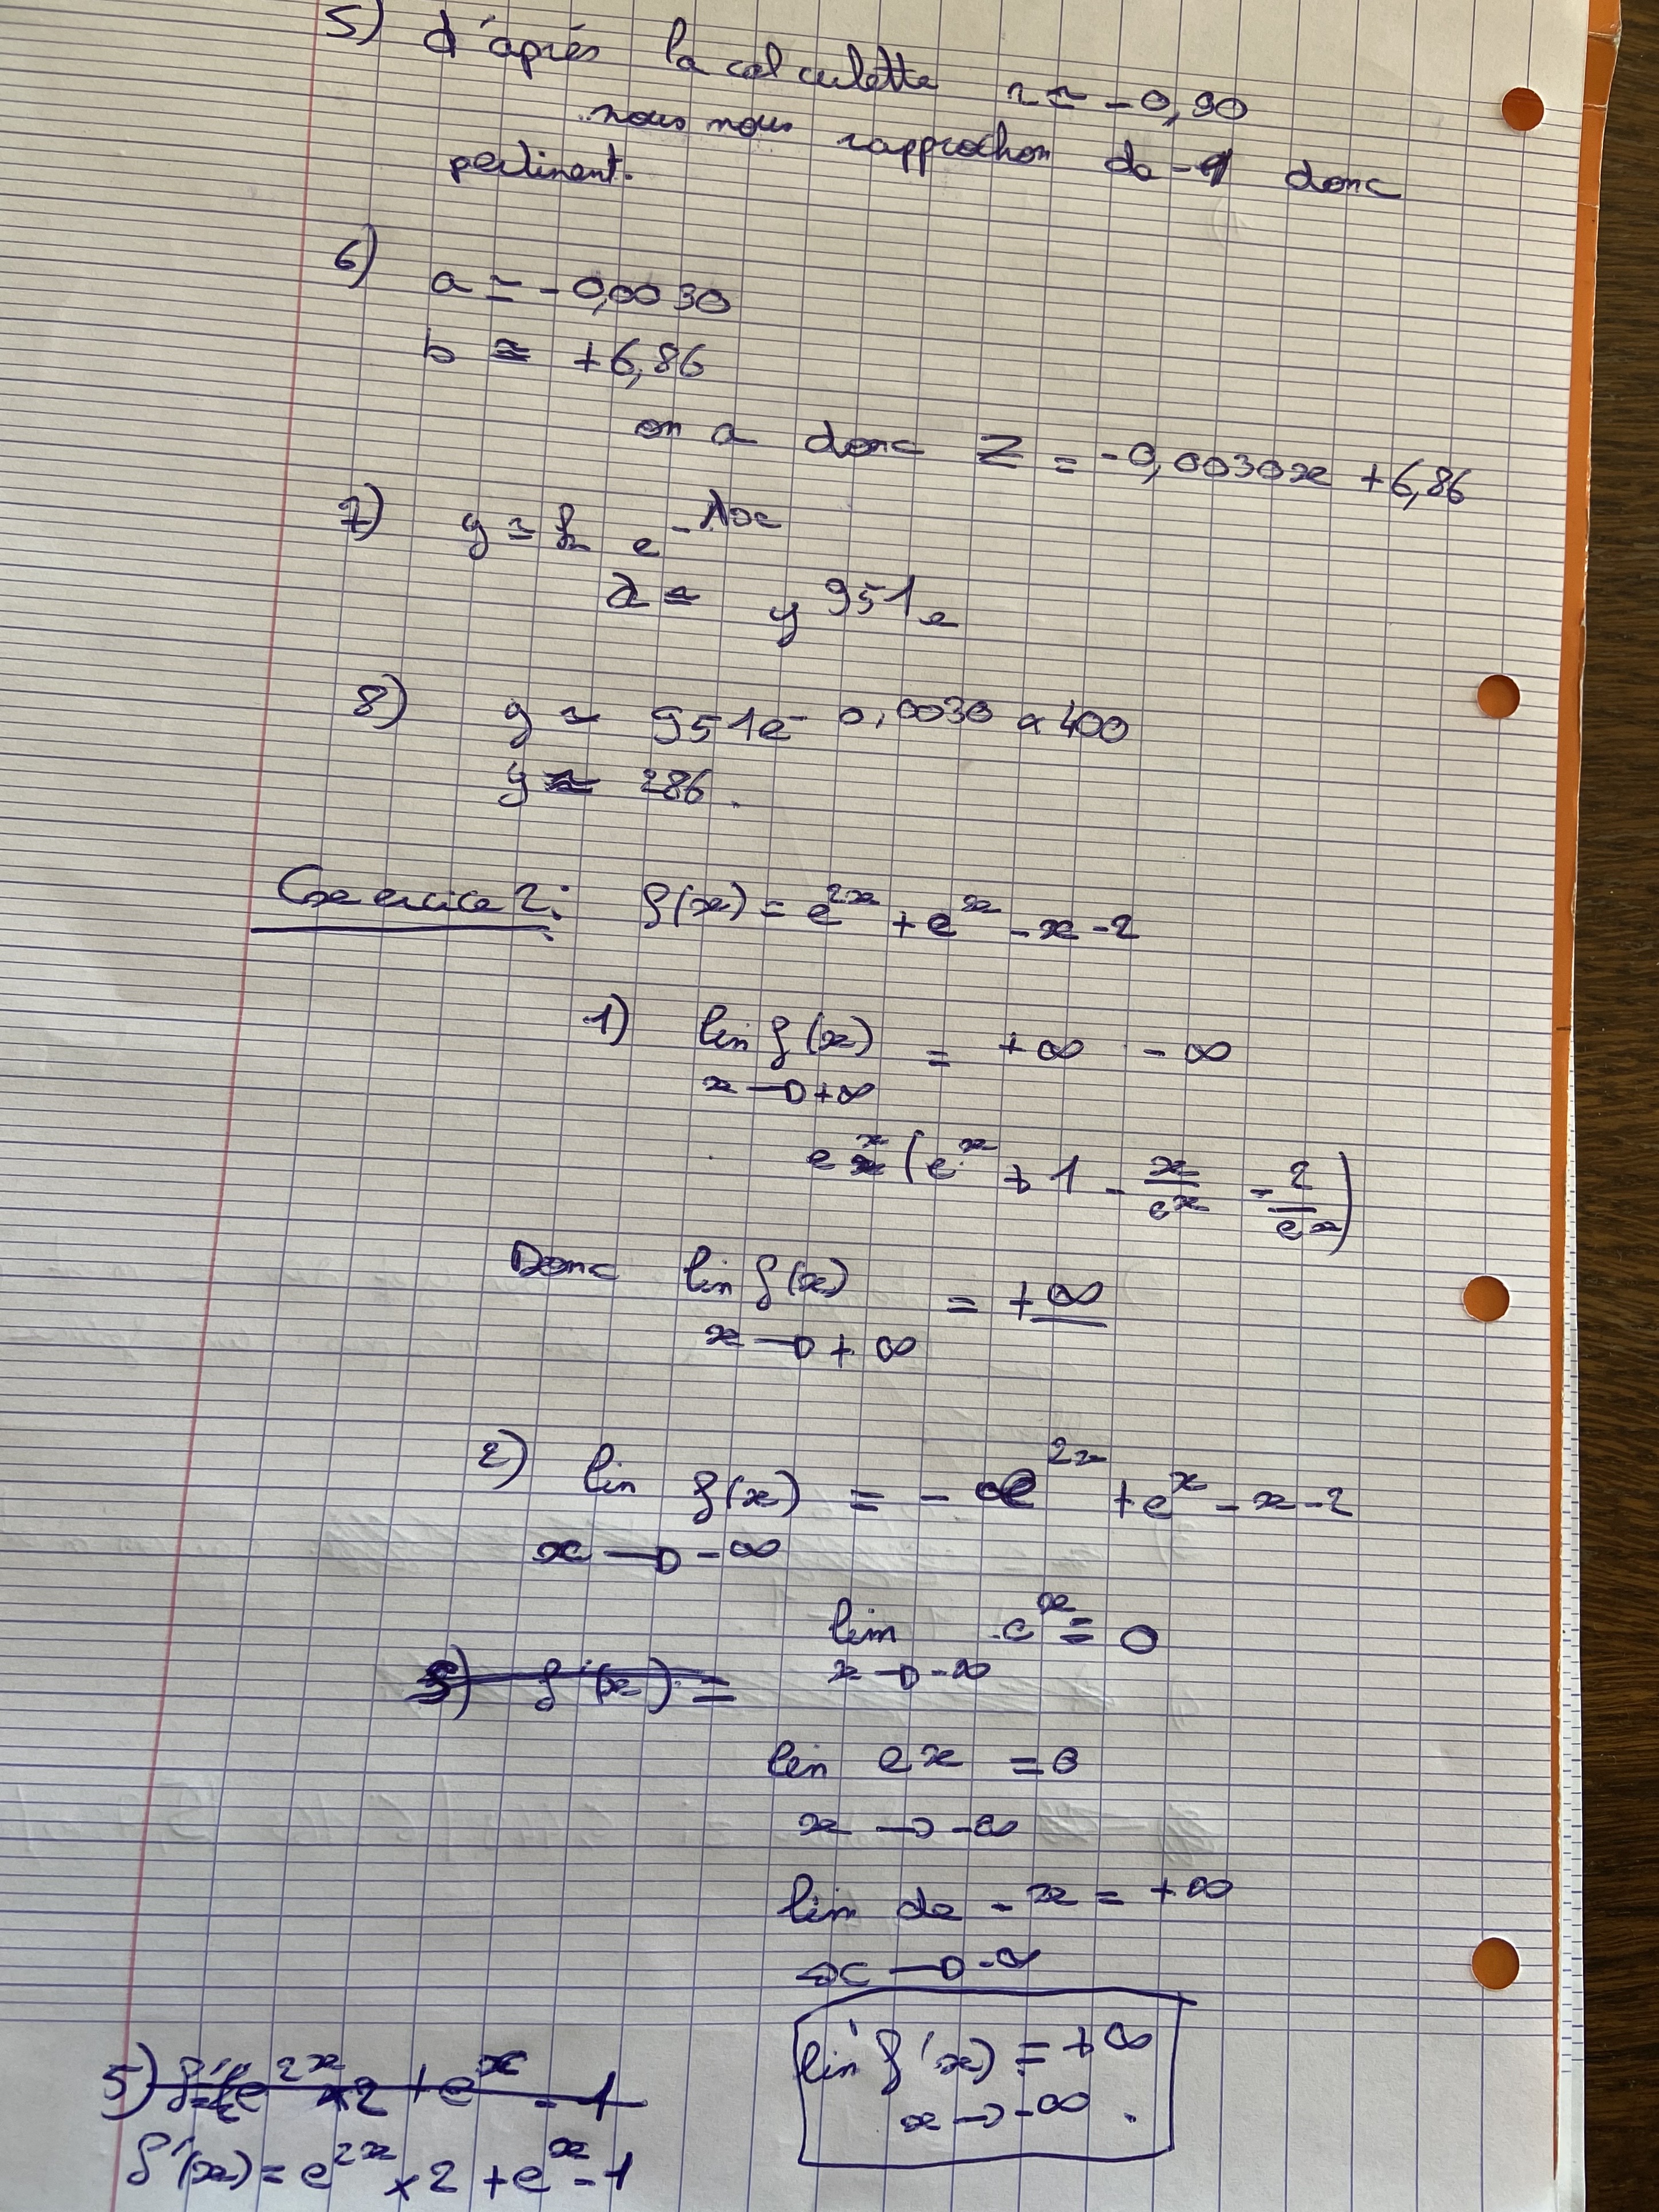 5) d'après la calculette r ≈ -0,90
nous nous rapprochon de -1 donc
pertinent.
6) a ≃ -0,0030
b ≈ +6,86
on a donc Z = -0,0030x + 6,86
7) y = k e^-λx
y 951 e
8) y ≃ 951e^-0,0030 x 400
y ≈ 286.
Exercice 2: f(x) = e^2x + e^x - x - 2
1) lim f(x) = +∞ - ∞
x → +∞
e^x (e^x + 1 - x/e^x - 2/e^x)
Donc lim f(x) = +∞
x → + ∞
2) lim f(x) = - e^2x + e^x - x - 2
x → -∞
lim e^x = 0
5) f'(x) =
x → -∞
lim ex = 0
x → -∞
lim de -x = +∞
x → -∞
lim f(x) = +∞
x → -∞.
5) f'= e^2x x2 + e^x - 1
f'(x) = e^2x x 2 + e^x - 1